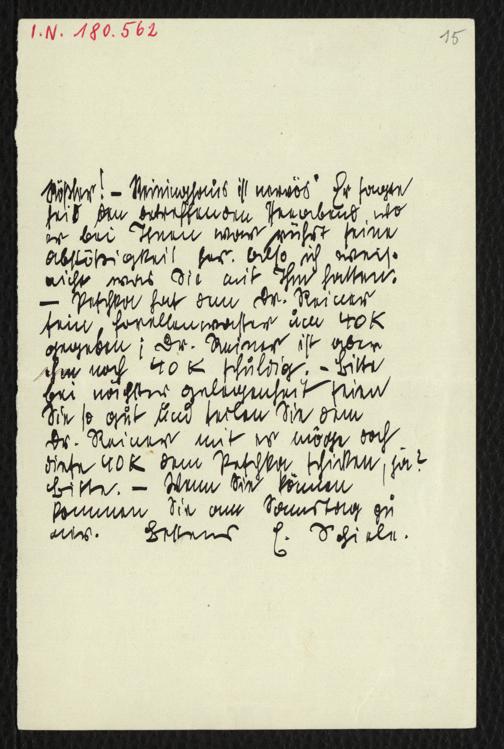 I.N. 180.562
15
Rößler! – Reininghaus ist nervös. Er sagte
seid dem betreffenden Heeabend, wo
er bei Ihnen war rührt seine
abstößigkeit her. also, ich weis-
nicht was Sie mit Ihm hatten.
– Peschka hat dem Dr. Reiner
sein Forellenwasser um 40 K
gegeben; Dr. Reiner ist aber
ihm noch 40 K schuldig. – Bitte
bei nächster gelegenheit seien
Sie so gut und teilen Sie dem
Dr. Reiner mit er möge doch
diese 40 K dem Peschka schicken, ja?
Bitte. – Wenn Sie können
kommen Sie am Samstag zu
mir. Bestens E. Schiele.